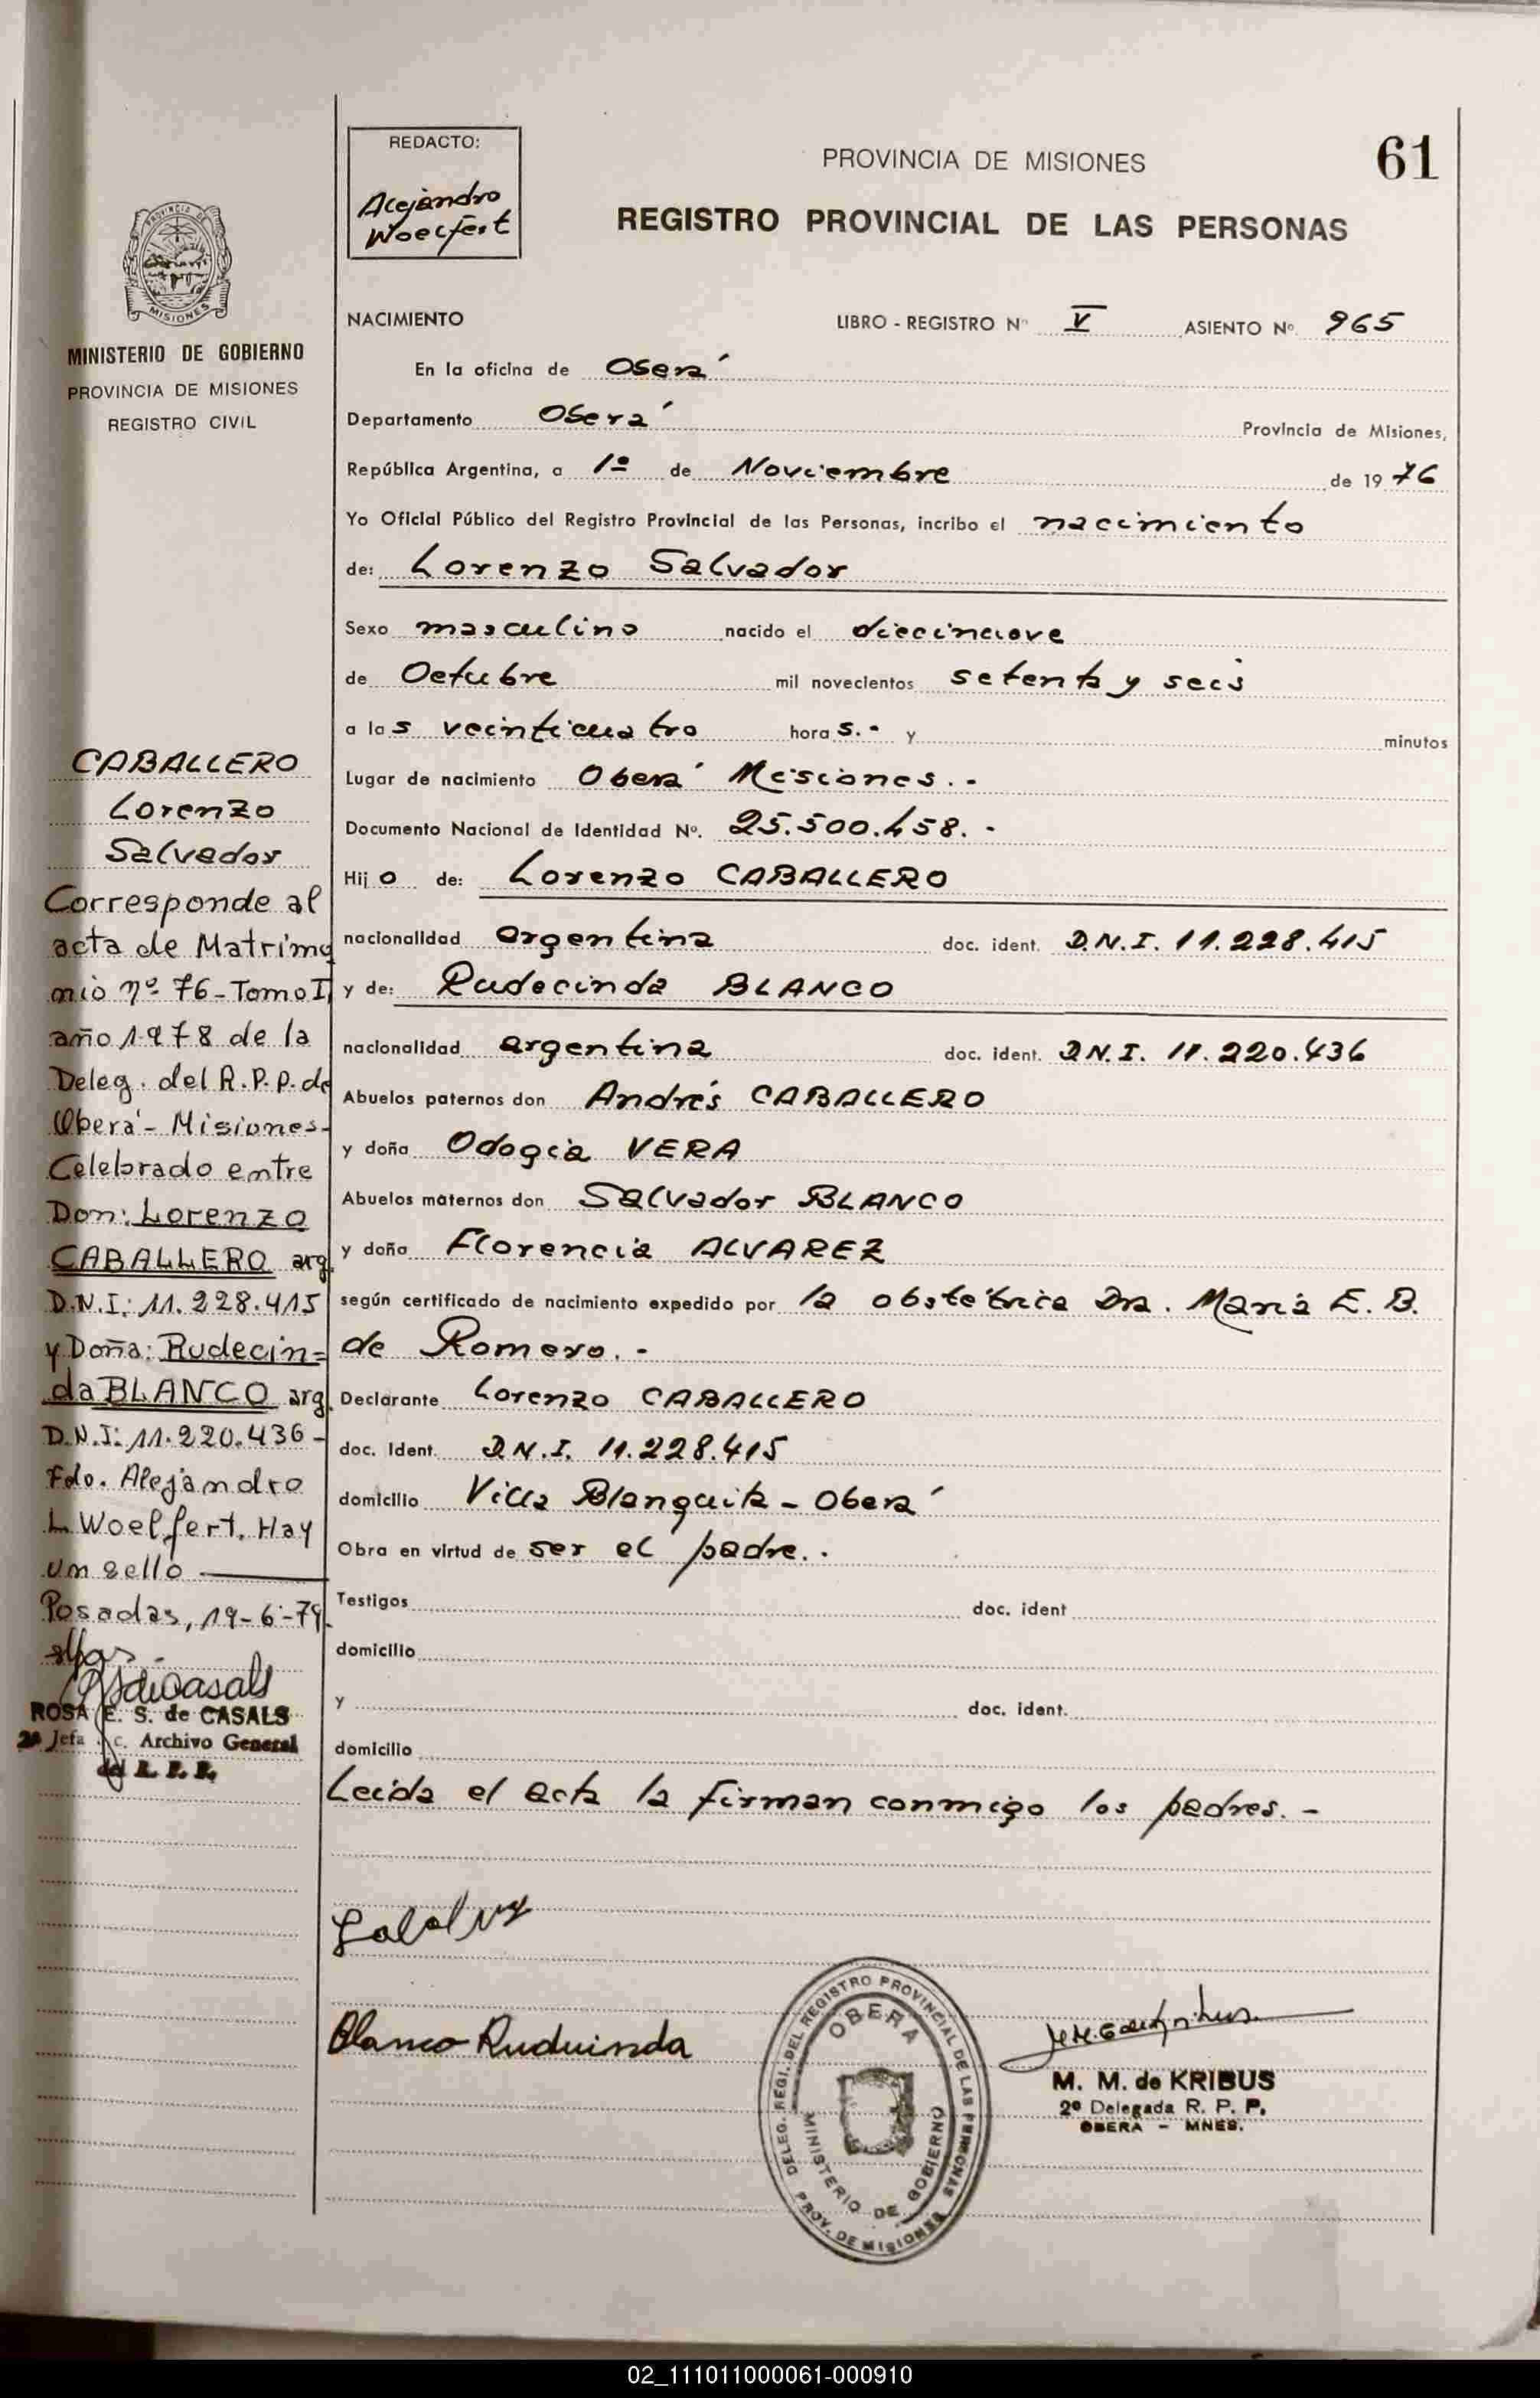 REDACTO:
Alejandro
Woelfert
PROVINCIA DE MISIONES
61
REGISTRO PROVINCIAL DE LAS PERSONAS
NACIMIENTO LIBRO - REGISTRO Nº V ASIENTO Nº 965
En la oficina de Oberá
Departamento Oberá Provincia de Misiones,
República Argentina, a 1º de Noviembre de 1976
Yo Oficial Público del Registro Provincial de las Personas, incribo el nacimiento
de: Lorenzo Salvador
Sexo masculino nacido el diecinueve
de Octubre mil novecientos setenta y seis
a las veinticuatro horas.- y minutos
Lugar de nacimiento Oberá Misiones.-
Documento Nacional de Identidad Nº. 25.500.458.-
Hijo de: Lorenzo CABALLERO
nacionalidad argentina doc. ident. D.N.I. 11.228.415
y de: Rudecinda BLANCO
nacionalidad argentina doc. ident. D.N.I. 11.220.436
Abuelos paternos don Andrés CABALLERO
y doña Odogia VERA
Abuelos maternos don Salvador BLANCO
y doña Florencia ALVAREZ
según certificado de nacimiento expedido por la obstétrica Dra. María E. B.
de Romero.-
Declarante Lorenzo CABALLERO
doc. Ident. D.N.I. 11.228.415
domicilio Villa Blanquita - Oberá
Obra en virtud de ser el padre..
Testigos doc. ident
domicilio
y doc. ident.
domicilio
Leída el acta la firman conmigo los padres.-
Blanco Ruduinda
DELEG. REGI. DEL REGISTRO PROVINCIAL DE LAS PERSONAS
OBERA
MINISTERIO DE GOBIERNO
PROV. DE MISIONES
M. M. de KRIBUS
2º Delegada R. P. P.
OBERA - MNES.
PROVINCIA DE
MISIONES
MINISTERIO DE GOBIERNO
PROVINCIA DE MISIONES
REGISTRO CIVIL
CABALLERO
Lorenzo
Salvador
Corresponde al
acta de Matrimo
nio nº 76-Tomo I
año 1978 de la
Deleg. del R.P.P. de
Oberá - Misiones-
Celebrado entre
Don: Lorenzo
CABALLERO arg.
D.N.I: 11.228.415
y Doña: Rudecin=
da BLANCO arg.
D.N.I: 11.220.436-
Fdo. Alejandro
L. Woelffert. Hay
un sello
Posadas, 19-6-79.
ROSA E. S. de CASALS
2ª Jefa c. Archivo General
del R. P. P.
02_111011000061-000910